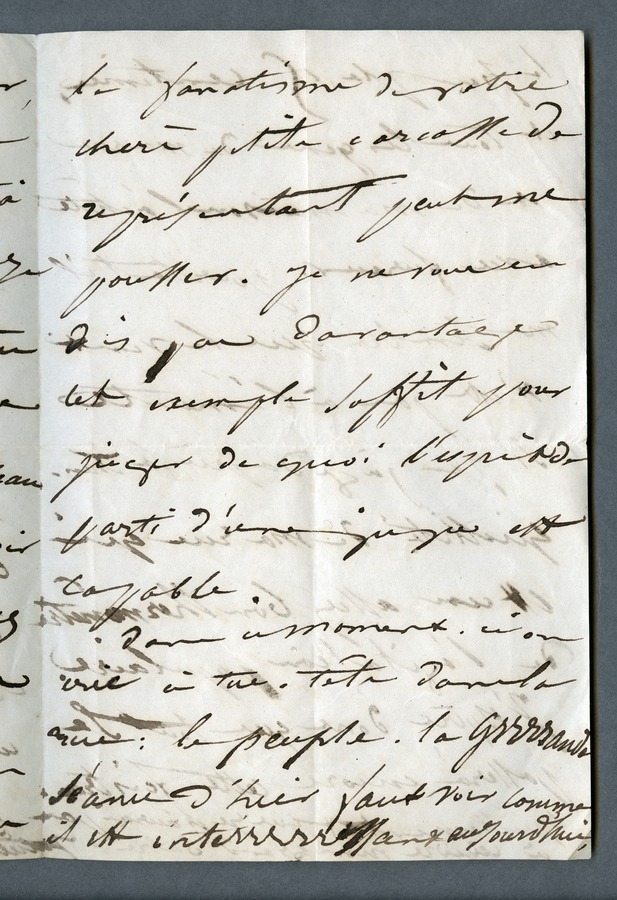 le fanatisme de votre
chere petite carcasse de
représentant peut me
pousser. Je ne vous en
dis pas davantage
cet exemple suffit pour
juger de quoi l'esprit de
parti d'une jupe est
capable.
Dans ce moment-ci on
crie à tue-tête dans la
rue: le peuple. la Grrrrande
séance d'hier faut voir comme
il est interrrrressant aujourd'hui,